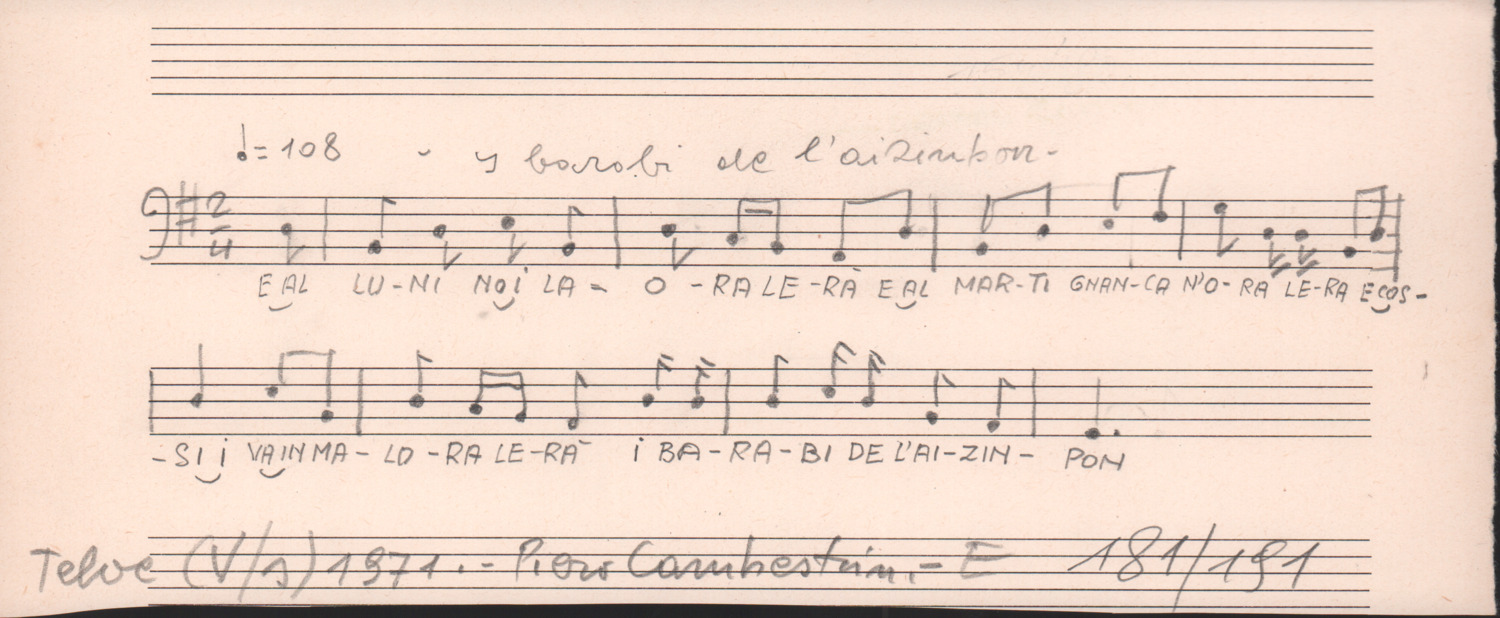 ♩= 108 - i barabi de l'aizinpon -
2/4
E AL LU-NI NOI LA- O -RA LE-RÀ E AL MAR-TI GNAN-CA N'O-RA LE-RA E COS-
-SI I VA IN MA-LO-RA LE-RÀ i BA-RA-BI DE L'AI-ZIN- PON
Telve (V/s) 1971.- Piero - E 181/191